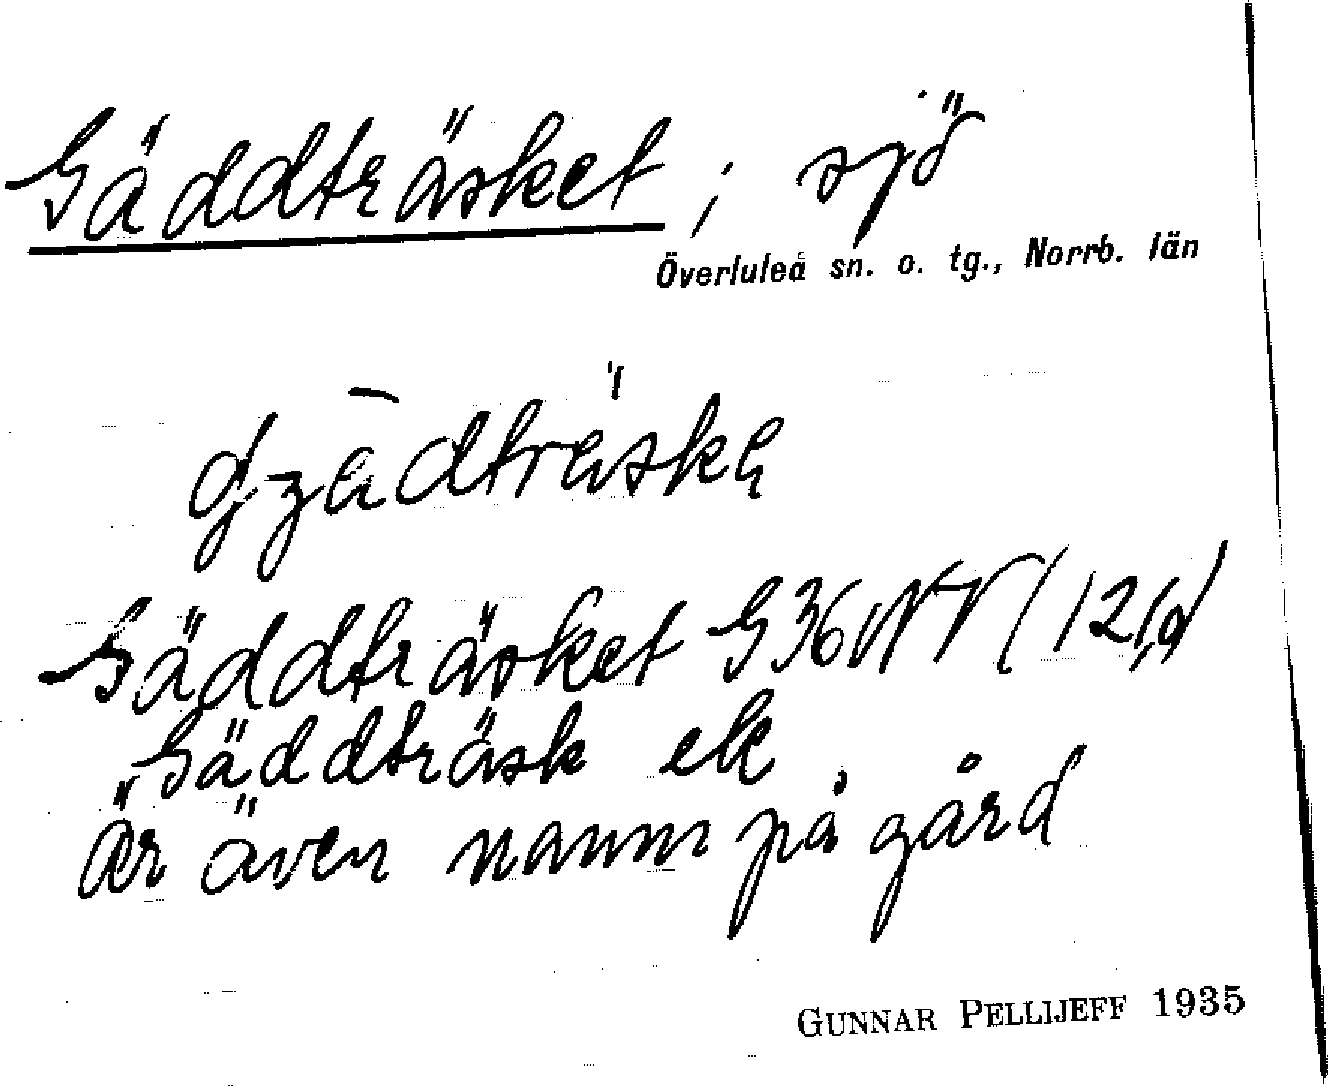 Gäddträsket, sjö
Överluleå sn. o. tg., Norrb. län
Gäddträsket G36NV (12,d)
Gäddträsk ek
Är även namn på gård
GUNNAR PELLIJEFF 1935